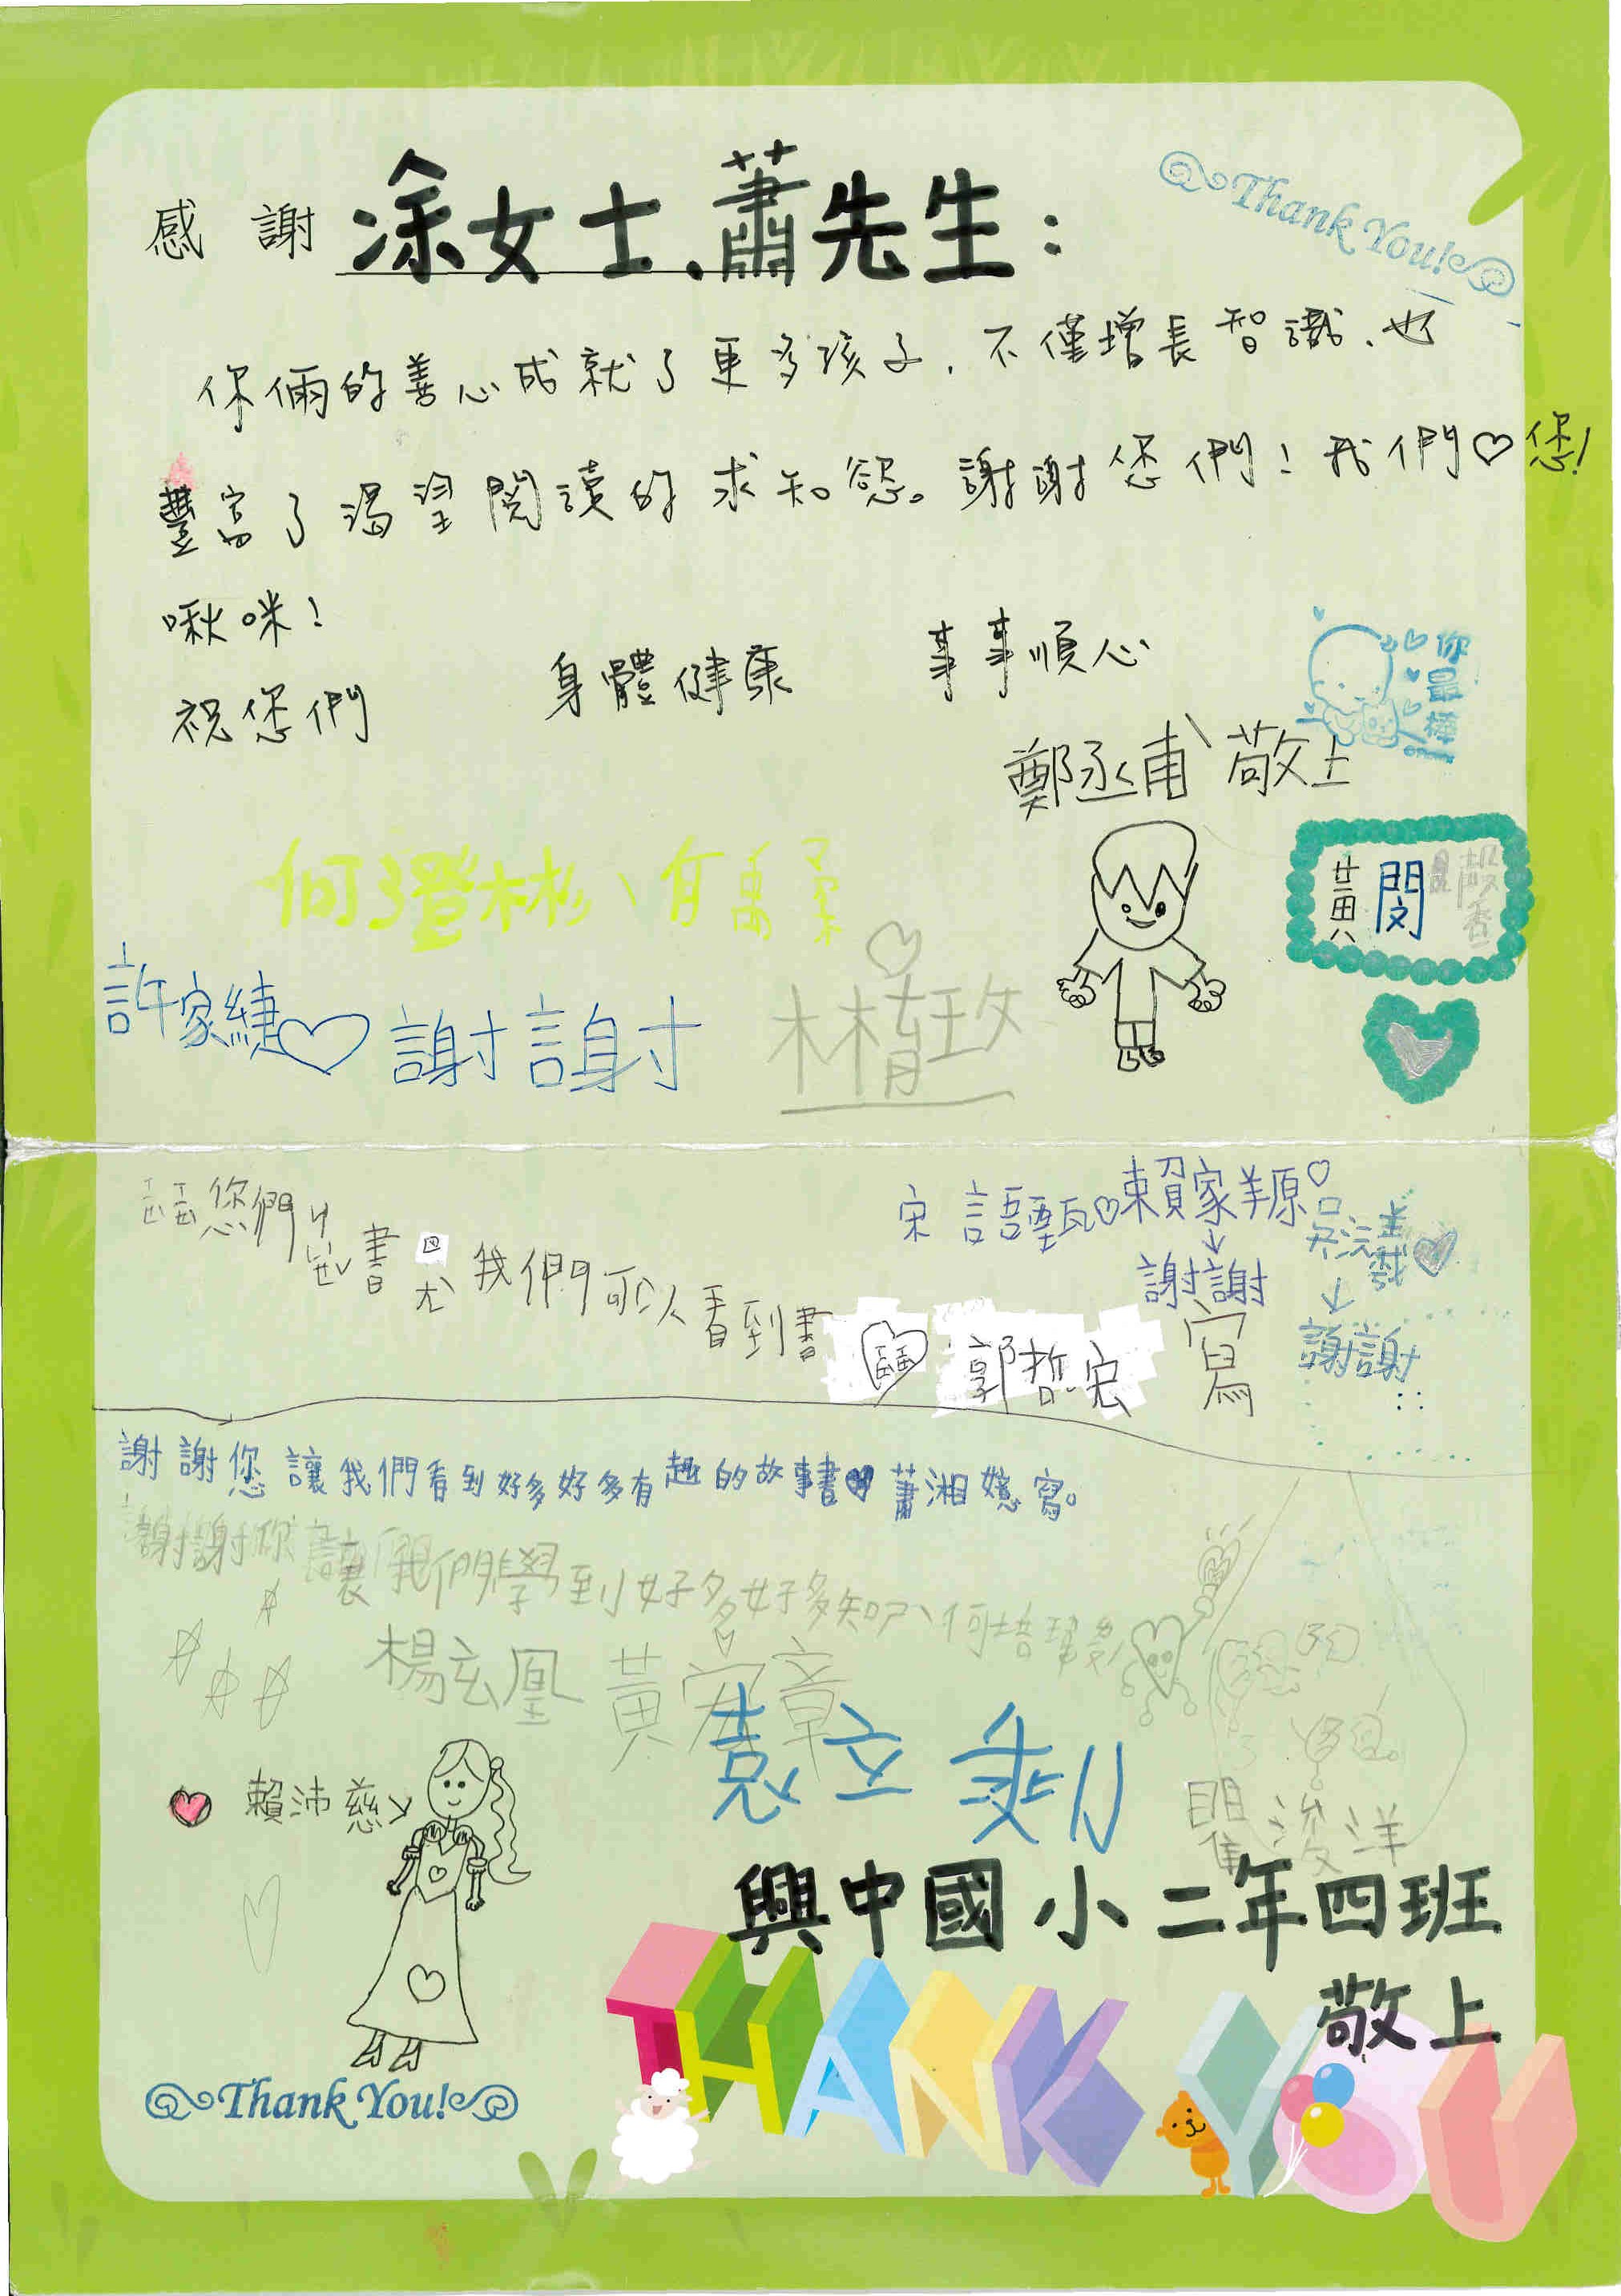 感謝 涂女士、蕭先生：
Thank You!
你倆的善心成就了更多孩子，不僅增長智識、也
豐富了渴望閱讀的求知慾。謝謝您們！我們♡您！
啾咪！
祝您們 身體健康 事事順心
你最棒
鄭丞甫 敬上
黃閔
許家緁♡謝謝
您們 書 我們可以看到書
郭哲宏 寫
宋語甄♡賴家羱♡
謝謝
謝謝
謝謝您讓我們看到好多好多有趣的故事書♥蕭湘嬑寫。
謝謝你讓我們學到好多好多知
楊玄凰 黃宏章
袁立
賴沛慈
興中國小二年四班
敬上
Thank You!
THANK YOU